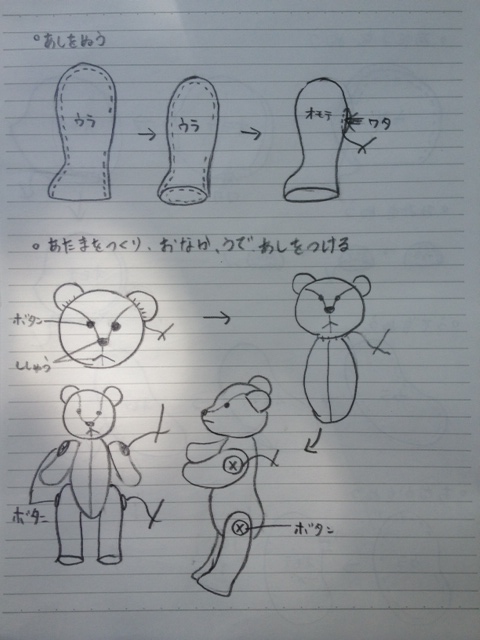 ○あしをぬう
ウラ
ウラ
オモテ
ワタ
○あたまをつくり、おなか、うで、あしをつける
ボタン
ししゅう
ボタン
ボタン